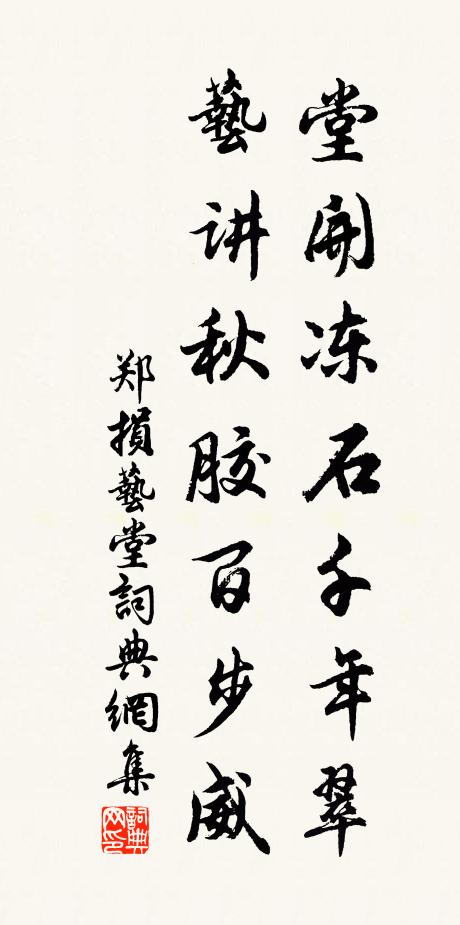 堂開冻石千年翠
藝讲秋胶百步威
郑損藝堂詞典網集
詞典网印